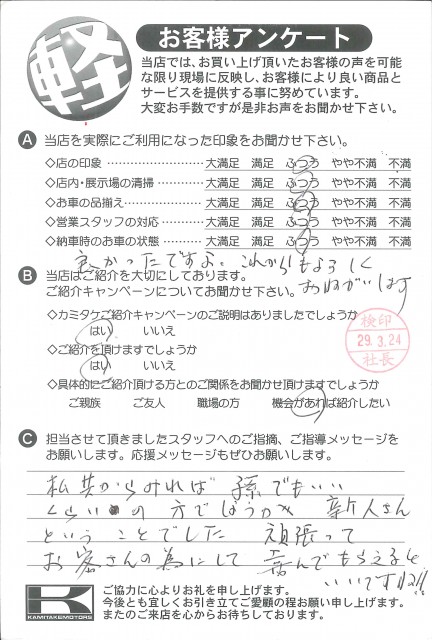 軽
お客様アンケート
当店では、お買い上げ頂いたお客様の声を可能
な限り現場に反映し、お客様により良い商品と
サービスを提供する事に努めています。
大変お手数ですが是非お声をお聞かせ下さい。
A 当店を実際にご利用になった印象をお聞かせ下さい。
◇店の印象 ………………… 大満足 満足 ふつう やや不満 不満
◇店内・展示場の清掃 ……… 大満足 満足 ふつう やや不満 不満
◇お車の品揃え ……………… 大満足 満足 ふつう やや不満 不満
◇営業スタッフの対応 ……… 大満足 満足 ふつう やや不満 不満
◇納車時のお車の状態 ……… 大満足 満足 ふつう やや不満 不満
良かったですよ。これからもよろしく
おねがいします
B 当店はご紹介を大切にしております。
ご紹介キャンペーンについてお聞かせ下さい。
◇カミタケご紹介キャンペーンのご説明はありましたでしょうか
はい いいえ
◇ご紹介を頂けますでしょうか
はい いいえ
◇具体的にご紹介頂ける方とのご関係をお聞かせ頂けますでしょうか
ご親族 ご友人 職場の方 機会があれば紹介したい
検印
29.3.24
社長
C 担当させて頂きましたスタッフへのご指摘、ご指導メッセージを
お願いします。応援メッセージもぜひお願いします。
私共からみれば 孫でもいい
くらいの方でしょうか 新人さん
ということでした 頑張って
お客さんの為にして 喜んでもらえると
いいですね
K
KAMITAKEMOTORS
ご協力に心よりお礼を申し上げます。
今後とも宜しくお引き立てご愛顧の程お願い申し上げます。
またのご来店を心からお待ちしております。